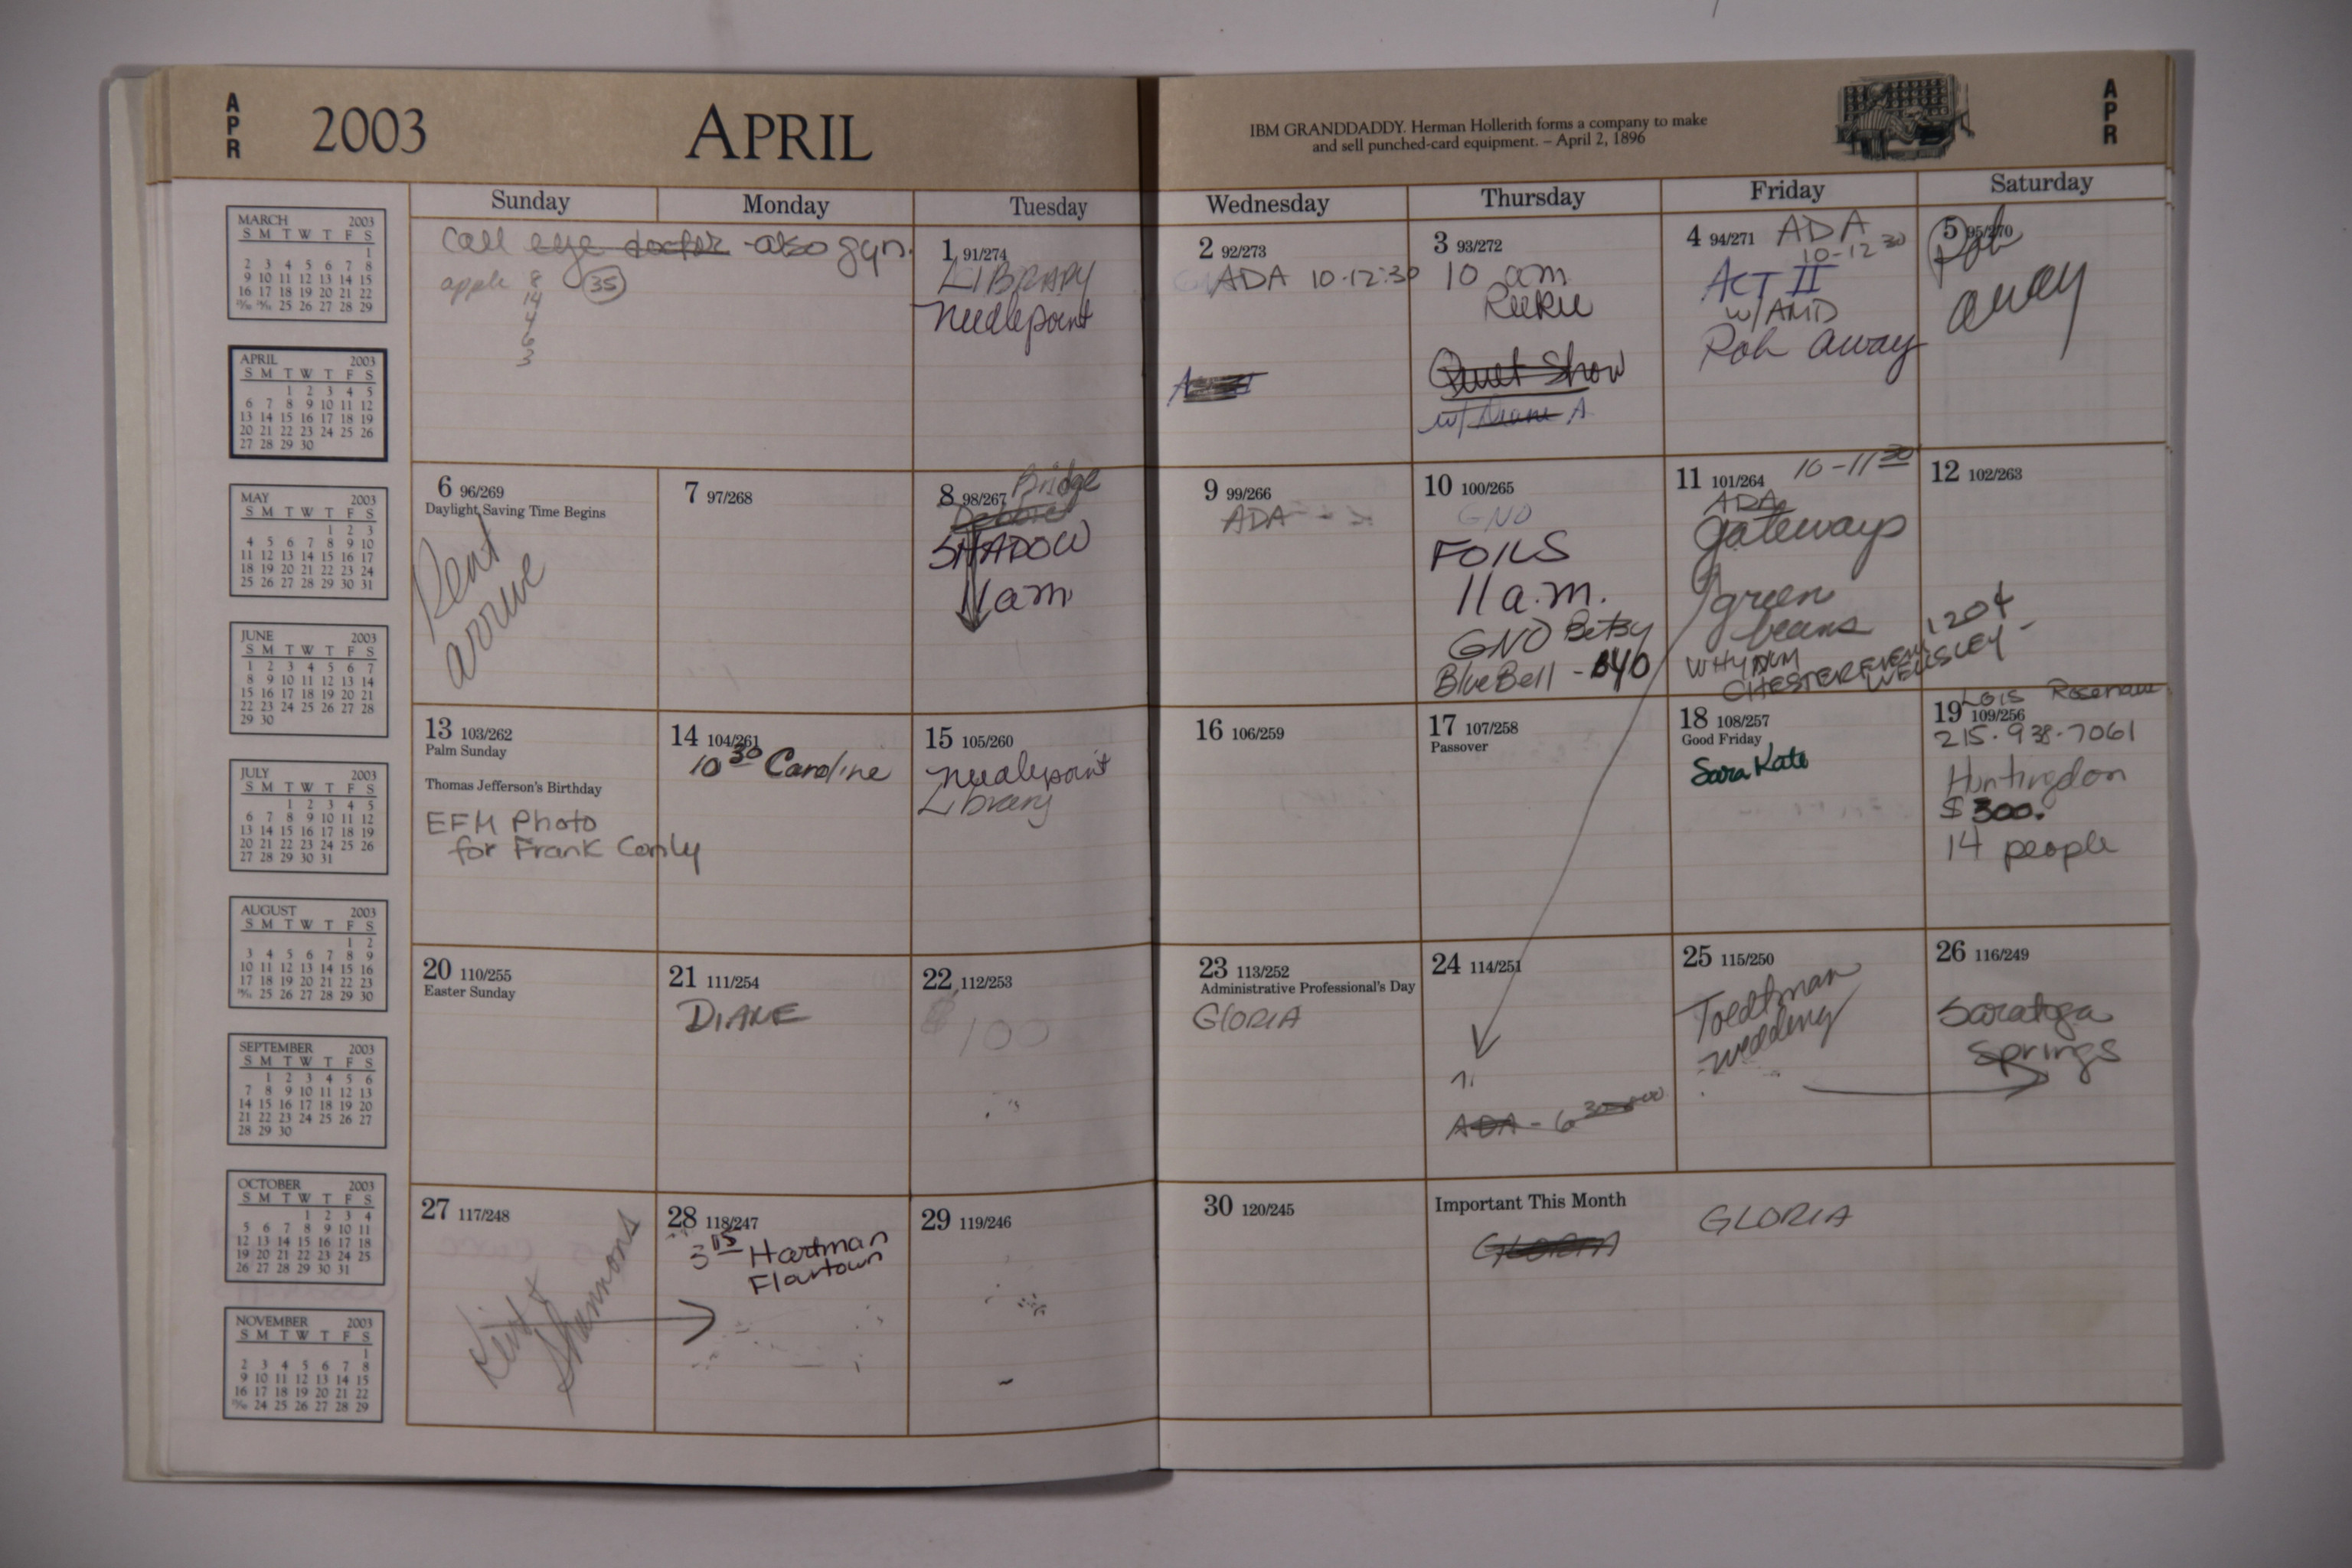 APR
2003
APRIL
IBM GRANDDADDY. Herman Hollerith forms a company to make
and sell punched-card equipment. – April 2, 1896
APR
Sunday Monday Tuesday Wednesday Thursday Friday Saturday
call eye doctor - also gyn.
apple 8
14
4
6
3
35
1 91/274
LIBRARY
Needlepoint
2 92/273
ADA 10-12:30
3 93/272
10 am
Quiet Show
w/ Diane A
4 94/271 ADA
10-12 30
ACT II
w/AMD
Rob away
5 95/270
Rob
away
6 96/269
Daylight Saving Time Begins
arrive
7 97/268
8 98/267
Bridge
SHADOW
11am
9 99/266
ADA
10 100/265
GNO
FOILS
11 a.m.
GNO Betsy
Blue Bell - BYO
11 101/264
10-11 30
ADA
gateways
green
beans
WHYNM
CHESTER
1204
12 102/263
13 103/262
Palm Sunday
Thomas Jefferson's Birthday
EFM Photo
for Frank Conly
14 104/261
10 30 Caroline
15 105/260
Needlepoint
Library
16 106/259
17 107/258
Passover
18 108/257
Good Friday
Sara Kate
Lois
19 109/256
215-938-7061
Huntingdon
$300.
14 people
20 110/255
Easter Sunday
21 111/254
DIANE
22 112/253
$100
23 113/252
Administrative Professional's Day
GLORIA
24 114/251
ADA - 6 30
25 115/250
Toedtman
wedding
26 116/249
Saratoga
Springs
27 117/248
Shannons
28 118/247
3 15 Hartman
Flourtown
29 119/246
30 120/245
Important This Month
GLORIA
GLORIA
MARCH 2003
S M T W T F S
1
2 3 4 5 6 7 8
9 10 11 12 13 14 15
16 17 18 19 20 21 22
23/30 24/31 25 26 27 28 29
APRIL 2003
S M T W T F S
1 2 3 4 5
6 7 8 9 10 11 12
13 14 15 16 17 18 19
20 21 22 23 24 25 26
27 28 29 30
MAY 2003
S M T W T F S
1 2 3
4 5 6 7 8 9 10
11 12 13 14 15 16 17
18 19 20 21 22 23 24
25 26 27 28 29 30 31
JUNE 2003
S M T W T F S
1 2 3 4 5 6 7
8 9 10 11 12 13 14
15 16 17 18 19 20 21
22 23 24 25 26 27 28
29 30
JULY 2003
S M T W T F S
1 2 3 4 5
6 7 8 9 10 11 12
13 14 15 16 17 18 19
20 21 22 23 24 25 26
27 28 29 30 31
AUGUST 2003
S M T W T F S
1 2
3 4 5 6 7 8 9
10 11 12 13 14 15 16
17 18 19 20 21 22 23
24/31 25 26 27 28 29 30
SEPTEMBER 2003
S M T W T F S
1 2 3 4 5 6
7 8 9 10 11 12 13
14 15 16 17 18 19 20
21 22 23 24 25 26 27
28 29 30
OCTOBER 2003
S M T W T F S
1 2 3 4
5 6 7 8 9 10 11
12 13 14 15 16 17 18
19 20 21 22 23 24 25
26 27 28 29 30 31
NOVEMBER 2003
S M T W T F S
1
2 3 4 5 6 7 8
9 10 11 12 13 14 15
16 17 18 19 20 21 22
23/30 24 25 26 27 28 29